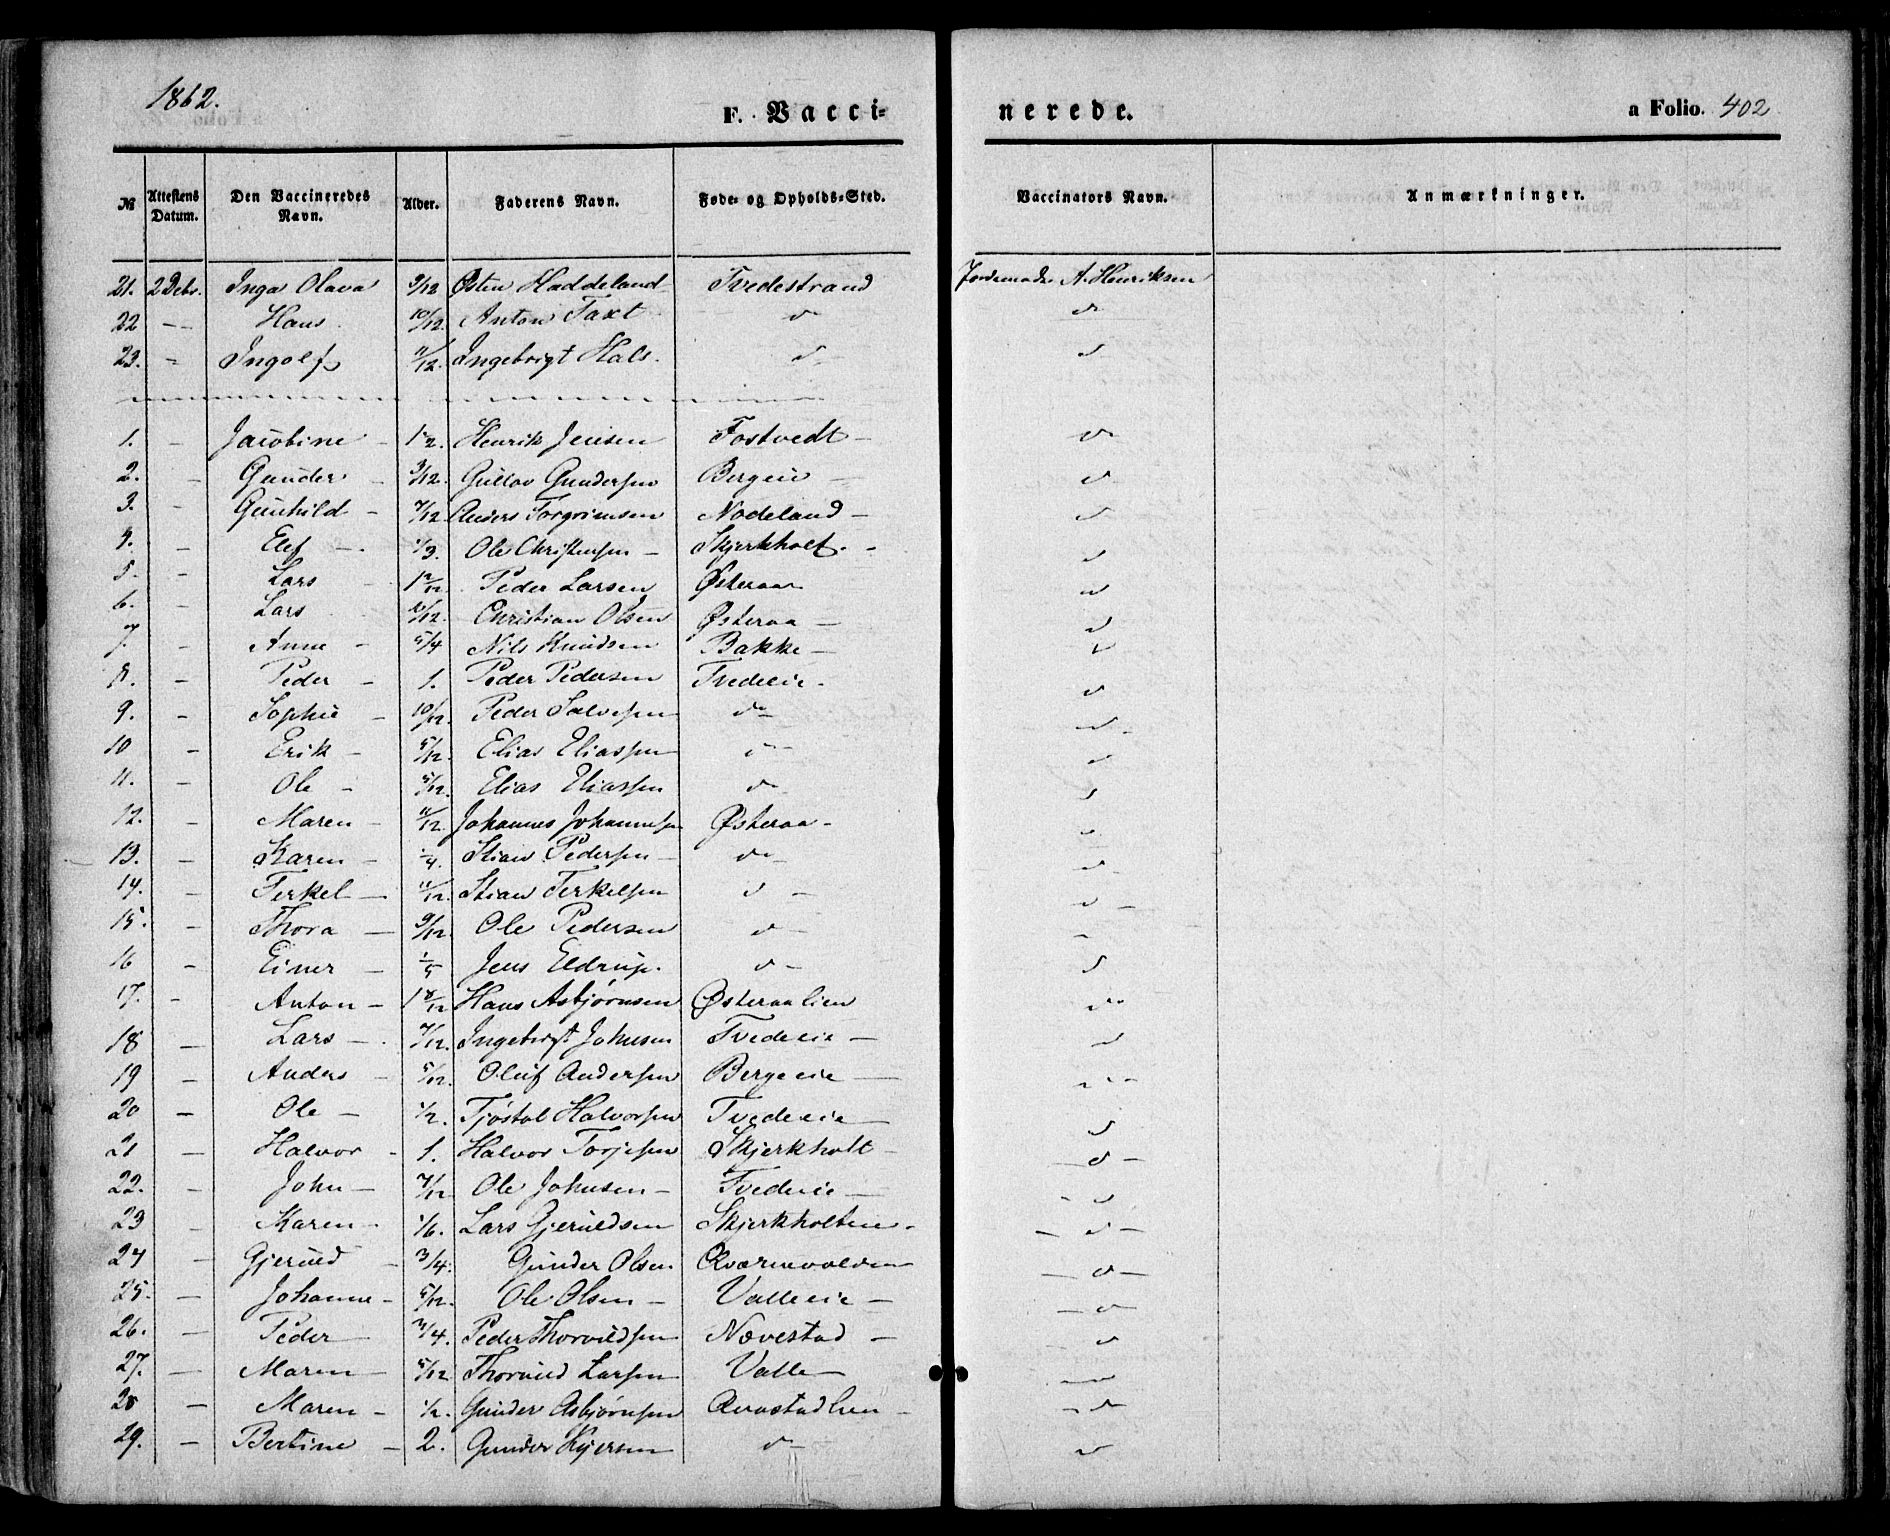 1862.
F. Vacci=
nerede.
a Folio. 402
№ Attestens Datum. Den Vaccineredes Navn. Alder. Faderens Navn. Føde- og Opholds-Sted. Vaccinators Navn. Anmærkninger.
21. 2 Debr. Inga Olava 9/12 Østen Haddeland Tvedestrand Jordemoder A. Henriksen
22 — Hans 10/12 Anton Taxt do do
23. - Ingolf 11/12 Ingebrigt Hals. d d
1. - Jacobine - 1 1/2. Henrik Jensen Fostvedt - do
2. - Gunder - 3/12. Gullov Gundersen Bergeie - d
3. - Gunhild - 7/12 Anders Torgrimsen Nodeland - d
4. - Elef -. 1/3. Ole Christensen - Skjerkholt. - d
5. - Lars - Peder Larsen Østeraa d
6. - Lars Christian Olsen Østeraa - d
7. - Anne - 5/4 Nils Knudsen Bakke - d
8. - Peder - 1. Peder Pedersen Tvedeeie - d
9. - Sophie - 10/12. Peder Salvesen do d
10 - Erik - 5/12. Elias Eliassen do d
11. - Ole - 5/12. Elias Eliassen do d
12. - Maren - 11/12 Johannes Johannesen Østeraa - d
13. - Karen - 1/4. Stian Pedersen - do d
14. - Terkel - 11/12 Stian Terkelsen d - d -
15. - Thora - 9/12 Ole Pedersen d - -
16 - Einer - 1/5 Jens Eldrup. d - d
17. - Anton - 1 8/12 Hans Asbjørnsen Østeraalien do
18 - Lars -. 7/12. Ingebrigt Johnsen Tvedeeie - d
19 - Anders - 5/12. Oluf Andersen Bergeeie - d
20 - Ole - 1/2. Tjøstol Halvorsen Tvedeeie d
21 - Halvor - 1. Halvor Torjesen Skjerkholt - - d -
22. - John - 7/12 Ole Johnsen - Tvedeeie - - d
23 - Karen - 1/6. Lars Gjeruldsen Skjerkholten - - d -
24 - Gjeruld - 3/4. Gunder Olsen Qværnevolden - d -
25. - Johanne - 5/12. Ole Olsen - Valleeie - - d
26. - Peder - 3/4. Peder Thorvildsen Nævestad - d
27. - Maren - 5/12 Thoruld Larsen Valle - d
28 - Maren - 1/2. Gunder Asbjørnsen - d
29. - Bertine - 2. Gunder do d